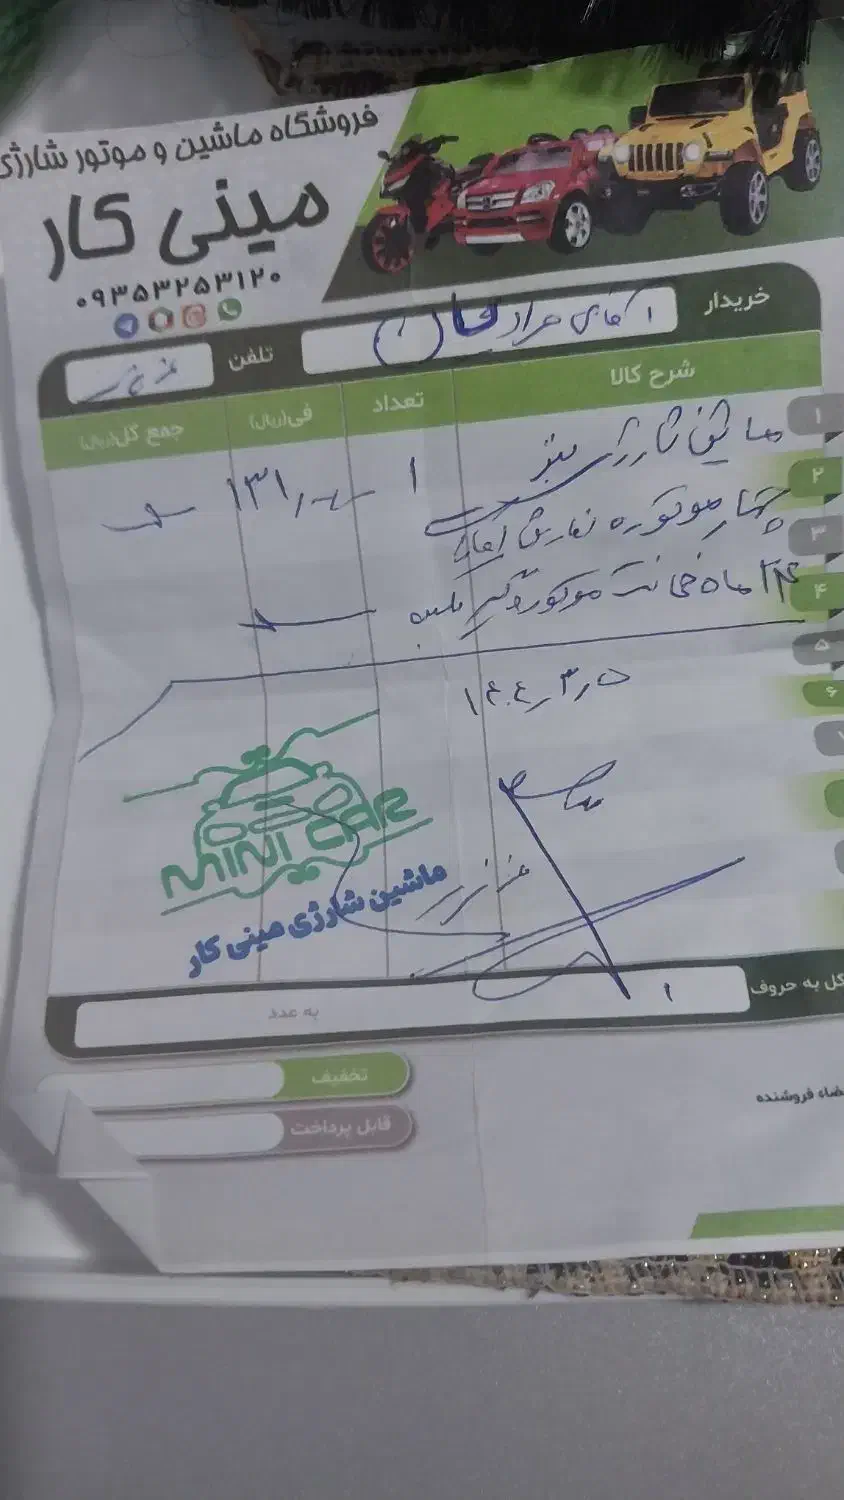 فروشگاه ماشین و موتور شارژی
مینی کار
۰۹۳۵۳۲۵۳۱۲۰
خریدار آقای مراد خان
تلفن عزیز
شرح کالا تعداد فی(ریال) جمع کل(ریال)
۱
ماشین شارژی بنز ۱ ۱۳۱٫
۲
چهار موتوره سفارش
۳
۲۴ ماه ضمانت موتور و گیربکس
۴
۵
۱۴۰۴٫۳٫۵
۶
MINI CAR
ماشین شارژی مینی کار
کل به حروف
به عدد
تخفیف
قابل پرداخت
ضاء فروشنده